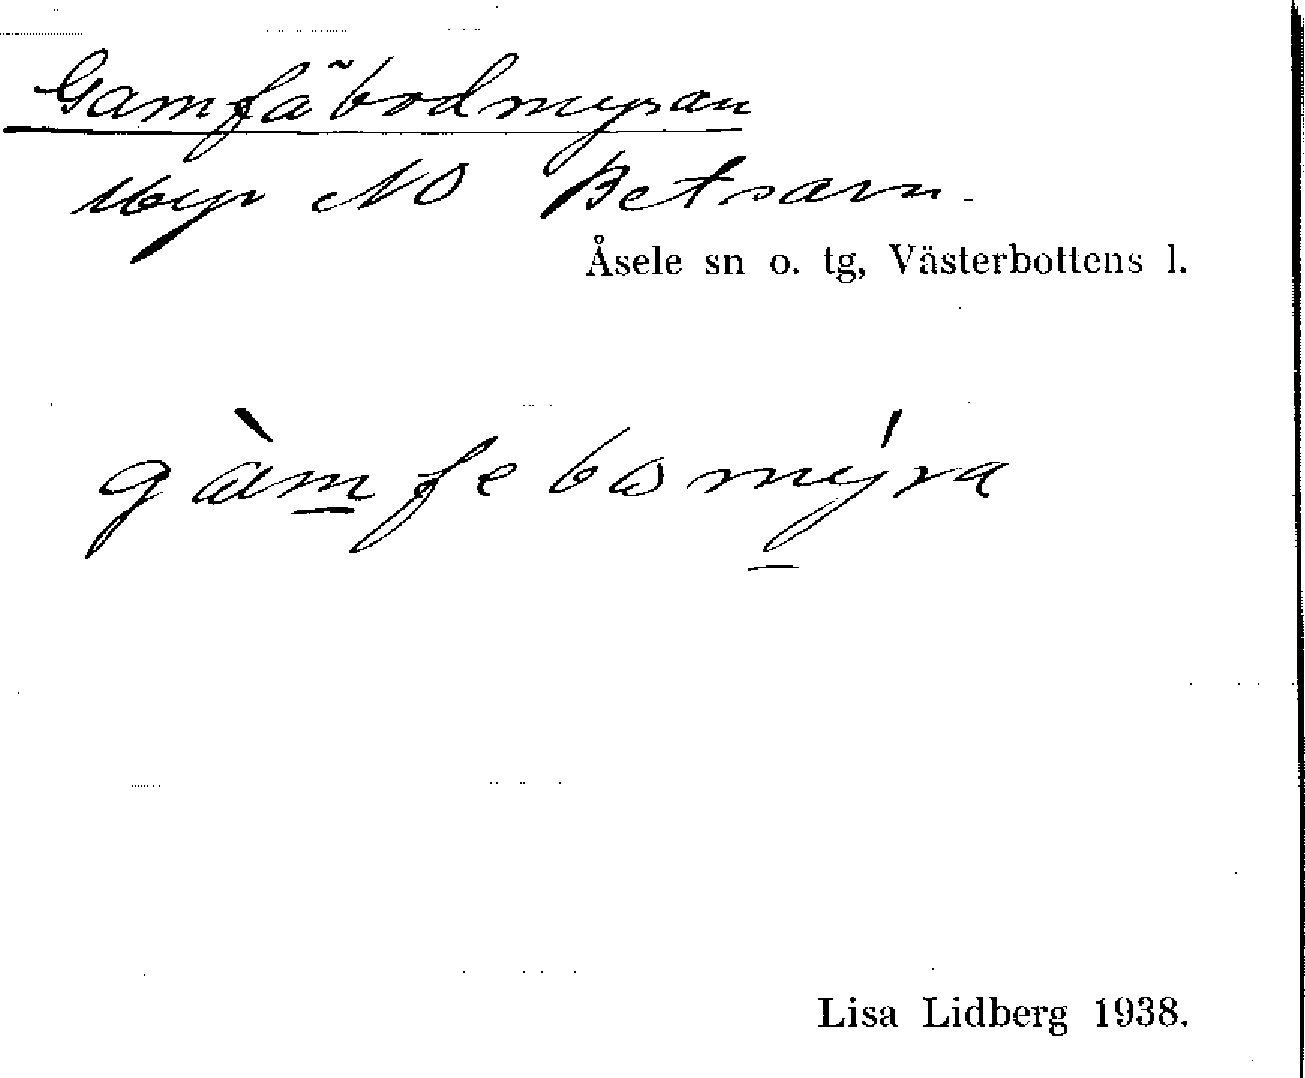 Gamfäbodmyran
Myr NO Betsarn.
Åsele sn o. tg, Västerbottens l.
gàmfebωmýra
Lisa Lidberg 1938.